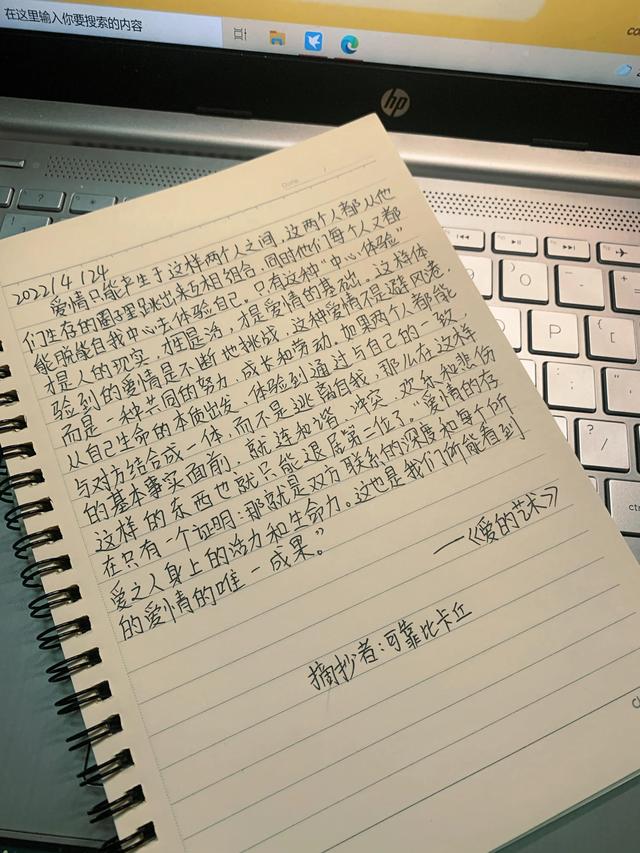 在这里输入你要搜索的内容
hp
Date
2022/4/24
爱情只能产生于这样两个人之间，这两个人都从他
们生存的圈子里跳出来互相组合，同时他们每个人又都
能脱能自我中心去体验自己。只有这种“中心体验”
才是人的现实，才是活，才是爱情的基础。这样体
验到的爱情是不断地挑战，这种爱情不是避风港，
而是一种共同的努力、成长和劳动。如果两个人都能
从自己生命的本质出发，体验到通过与自己的一致，
与对方结合成一体，而不是逃离自我，那么在这样
的基本事实面前，就连和谐、冲突、欢乐和悲伤
这样的东西也就只能退居第二位了。“爱情的存
在只有一个证明：那就是双方联系的深度和每个所
爱之人身上的活力和生命力。这也是我们所能看到
的爱情的唯一成果。”
——《爱的艺术》
摘抄者：可靠比卡丘